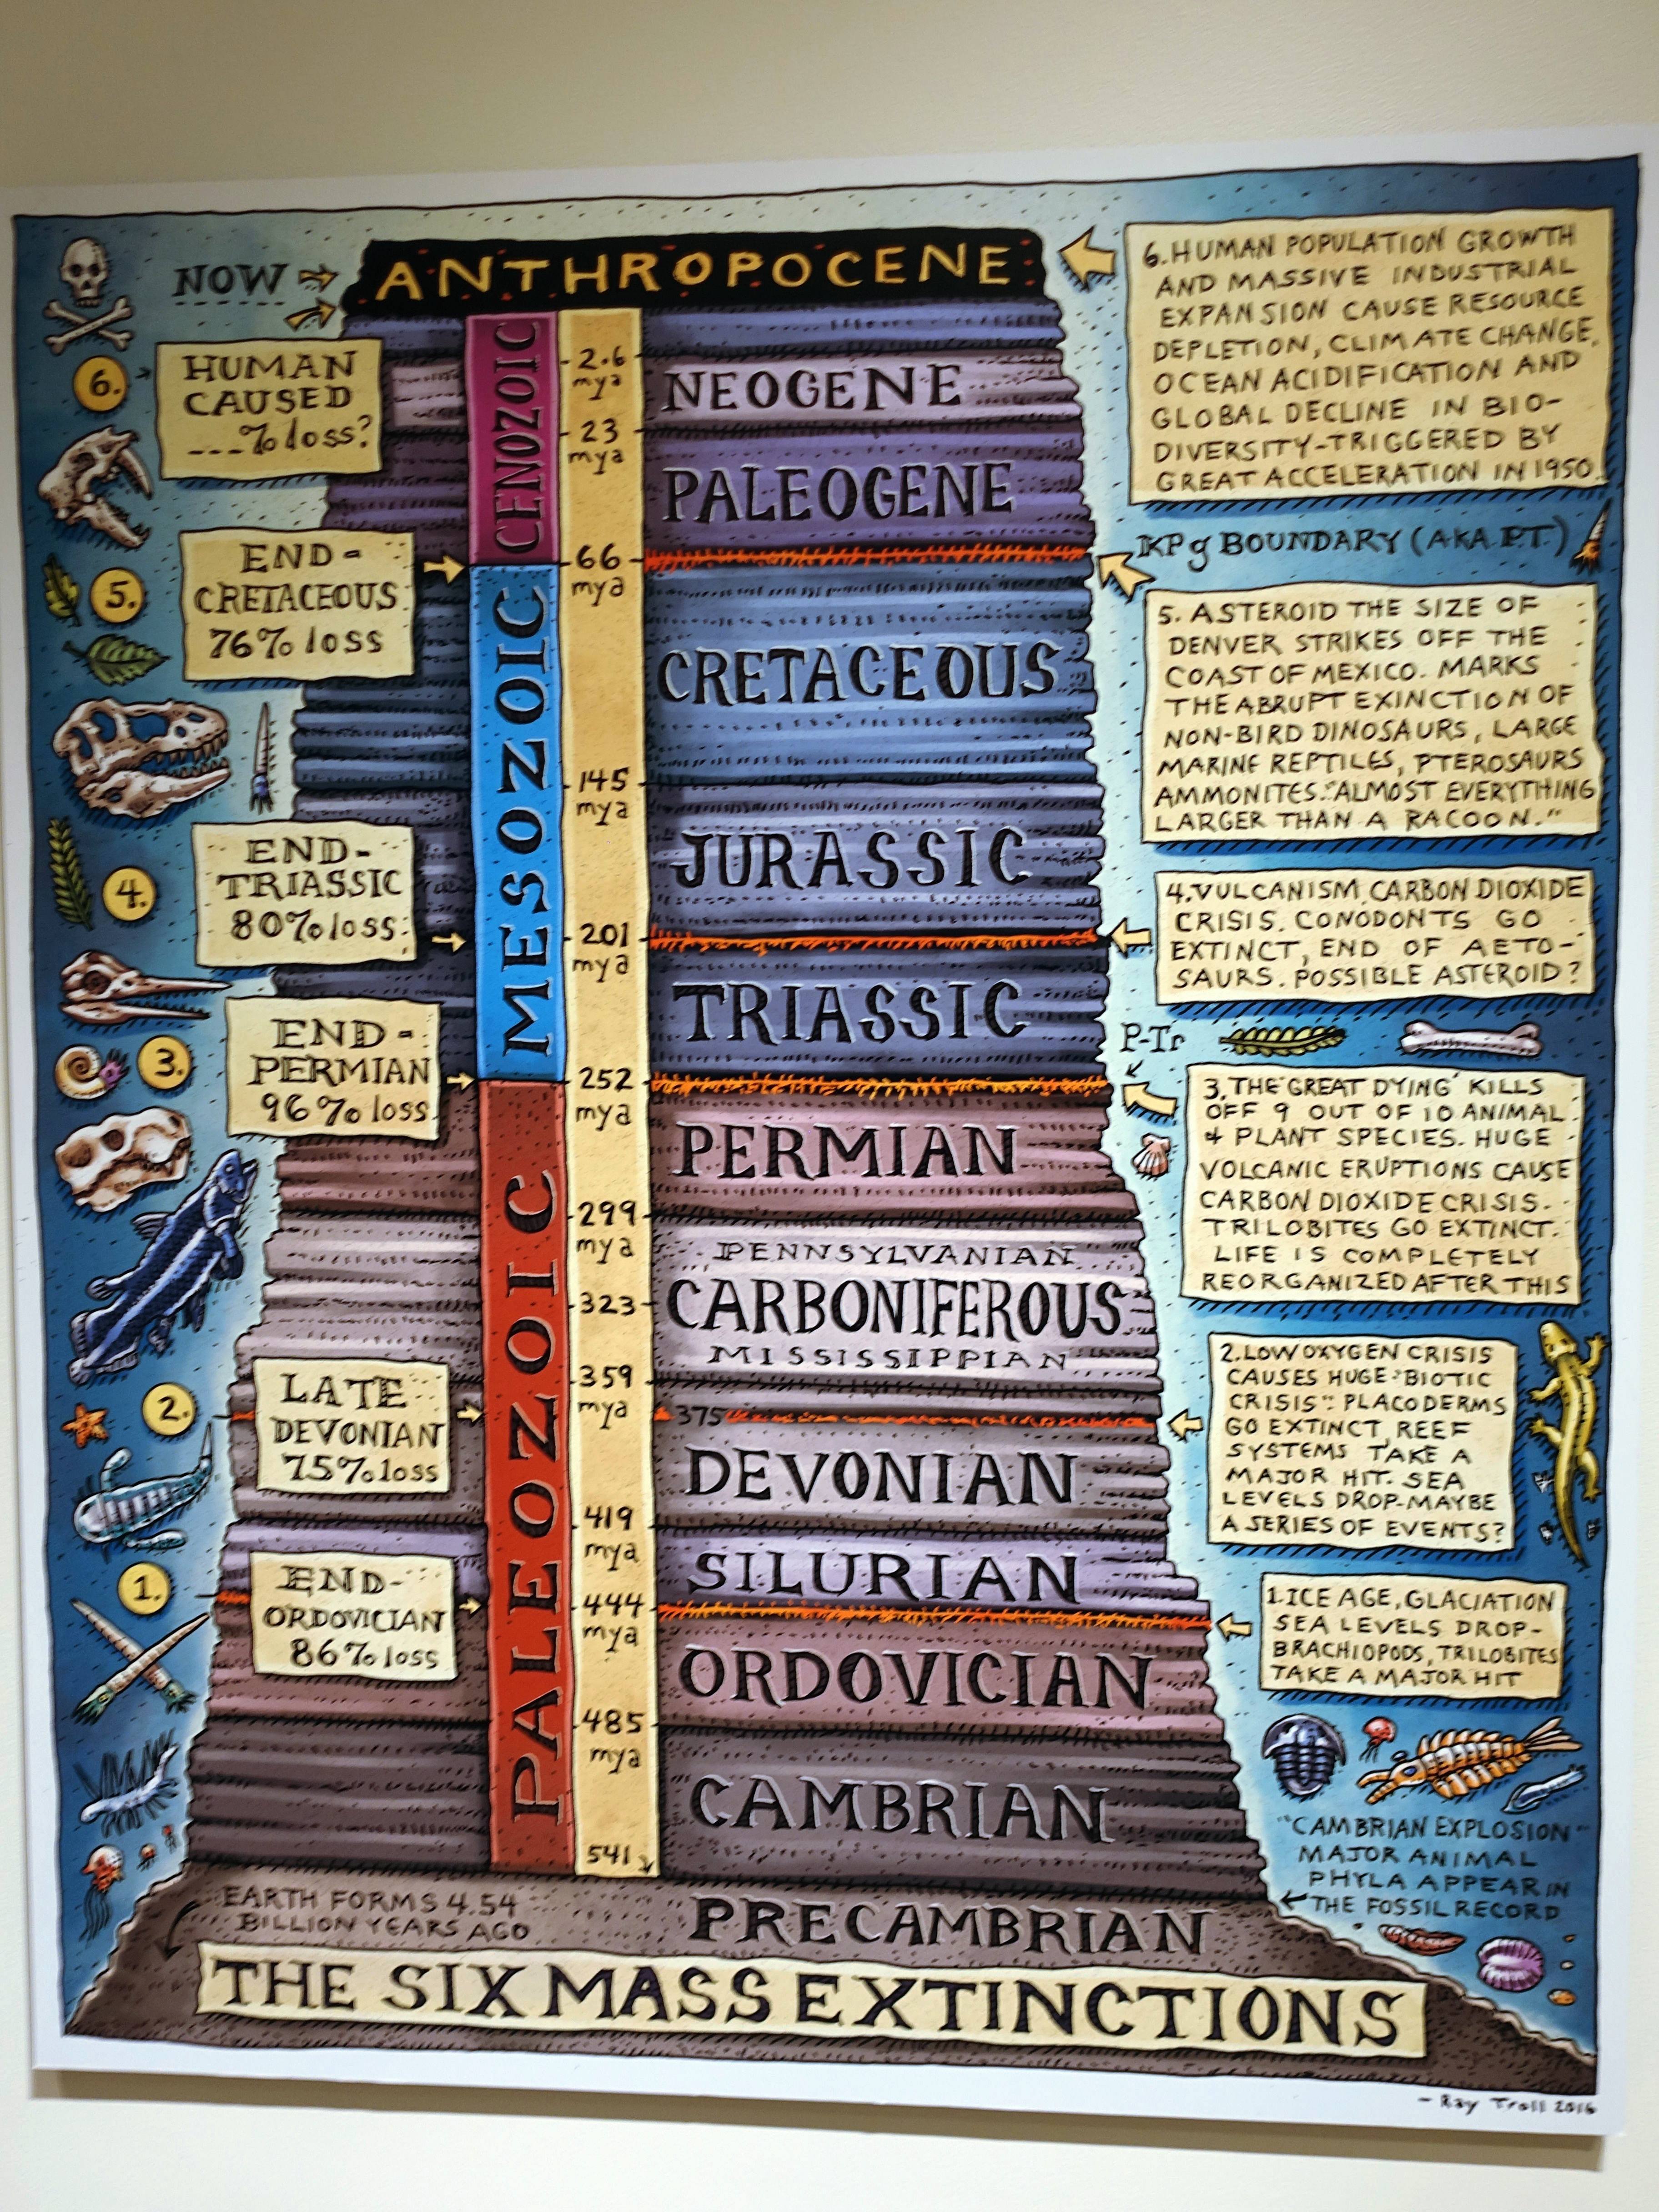 NOW
ANTHROPOCENE
6.
HUMAN
CAUSED
___% loss?
6. HUMAN POPULATION GROWTH
AND MASSIVE INDUSTRIAL
EXPANSION CAUSE RESOURCE
DEPLETION, CLIMATE CHANGE,
OCEAN ACIDIFICATION AND
GLOBAL DECLINE IN BIO-
DIVERSITY-TRIGGERED BY
GREAT ACCELERATION IN 1950
CENOZOIC
2.6
mya
NEOGENE
23
mya
PALEOGENE
66
mya
KPg BOUNDARY (AKA P.T.)
5.
END-
CRETACEOUS
76% loss
5. ASTEROID THE SIZE OF
DENVER STRIKES OFF THE
COAST OF MEXICO. MARKS
THE ABRUPT EXINCTION OF
NON-BIRD DINOSAURS, LARGE
MARINE REPTILES, PTEROSAURS
AMMONITES. "ALMOST EVERYTHING
LARGER THAN A RACOON."
MESOZOIC
CRETACEOUS
145
mya
JURASSIC
4.
END-
TRIASSIC
80% loss
201
mya
4. VULCANISM, CARBON DIOXIDE
CRISIS. CONODONTS GO
EXTINCT, END OF AETO-
SAURS. POSSIBLE ASTEROID?
TRIASSIC
P-Tr
3.
END-
PERMIAN
96% loss
252
mya
3. THE 'GREAT DYING' KILLS
OFF 9 OUT OF 10 ANIMAL
& PLANT SPECIES. HUGE
VOLCANIC ERUPTIONS CAUSE
CARBON DIOXIDE CRISIS.
TRILOBITES GO EXTINCT.
LIFE IS COMPLETELY
REORGANIZED AFTER THIS
PALEOZOIC
PERMIAN
299
mya
PENNSYLVANIAN
323
CARBONIFEROUS
MISSISSIPPIAN
359
mya
2.
LATE
DEVONIAN
75% loss
375
2. LOW OXYGEN CRISIS
CAUSES HUGE "BIOTIC
CRISIS": PLACODERMS
GO EXTINCT, REEF
SYSTEMS TAKE A
MAJOR HIT. SEA
LEVELS DROP-MAYBE
A SERIES OF EVENTS?
DEVONIAN
419
mya
SILURIAN
1.
END-
ORDOVICIAN
86% loss
444
mya
1. ICE AGE, GLACIATION
SEA LEVELS DROP-
BRACHIOPODS, TRILOBITES
TAKE A MAJOR HIT
ORDOVICIAN
485
mya
CAMBRIAN
541
"CAMBRIAN EXPLOSION"
MAJOR ANIMAL
PHYLA APPEAR IN
THE FOSSIL RECORD
EARTH FORMS 4.54
BILLION YEARS AGO
PRECAMBRIAN
THE SIX MASS EXTINCTIONS
- Ray Troll 2016